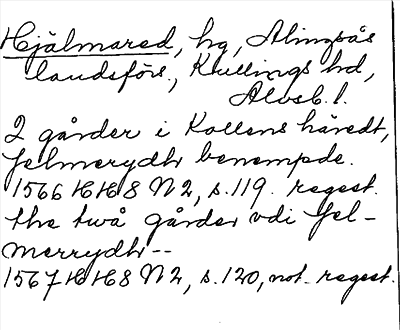 Hjälmared, hg, Alingsås
landsförs., Kullings hd,
Älvsb. l.
2 gårder i Kollens häredt,
Jelmerydh benempde.
1566 HH8 N2, s.119. regest.
the två gårder vdi Jel-
merrydh--
1567 HH8 N2, s.120, not. regest.